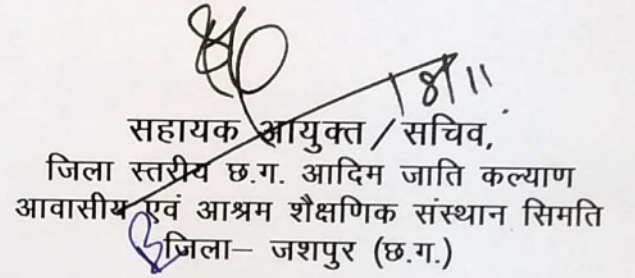 18/11
सहायक आयुक्त / सचिव,
जिला स्तरीय छ.ग. आदिम जाति कल्याण
आवासीय एवं आश्रम शैक्षणिक संस्थान सिमति
जिला– जशपुर (छ.ग.)